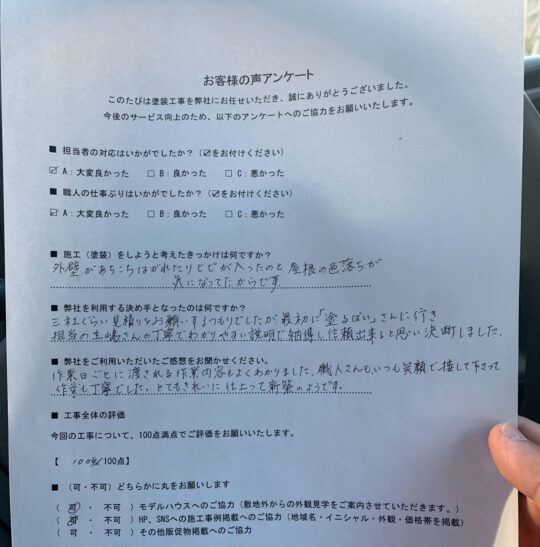 お客様の声アンケート
このたびは塗装工事を弊社にお任せいただき、誠にありがとうございました。
今後のサービス向上のため、以下のアンケートへのご協力をお願いいたします。
■ 担当者の対応はいかがでしたか？（☑をお付けください）
☑ A：大変良かった　□ B：良かった　□ C：悪かった
■ 職人の仕事ぶりはいかがでしたか？（☑をお付けください）
☑ A：大変良かった　□ B：良かった　□ C：悪かった
■ 施工（塗装）をしようと考えたきっかけは何ですか？
外壁があちこちはがれたりヒビが入ったのと屋根の色落ちが
気になってたからです
■ 弊社を利用する決め手となったのは何ですか？
三社くらい見積りをお願いするつもりでしたが最初に「塗るばい」さんに行き
担当の生嶋さんの丁寧でわかりやすい説明で納得し信頼出来ると思い決断しました。
■ 弊社をご利用いただいたご感想をお聞かせください。
作業日ごとに渡される作業内容もよくわかりました。職人さんもいつも笑顔で接して下さって
作業も丁寧でした。とてもきれいに仕上って新築のようです。
■ 工事全体の評価
今回の工事について、100点満点でご評価をお願いいたします。
【 100点/100点】
■ （可・不可）どちらかに丸をお願いします
（ 可 ・ 不可 ）モデルハウスへのご協力（敷地外からの外観見学をご案内させていただきます。）
（ 可 ・ 不可 ）HP、SNSへの施工事例掲載へのご協力（地域名・イニシャル・外観・価格帯を掲載）
（ 可 ・ 不可 ）その他販促物掲載へのご協力